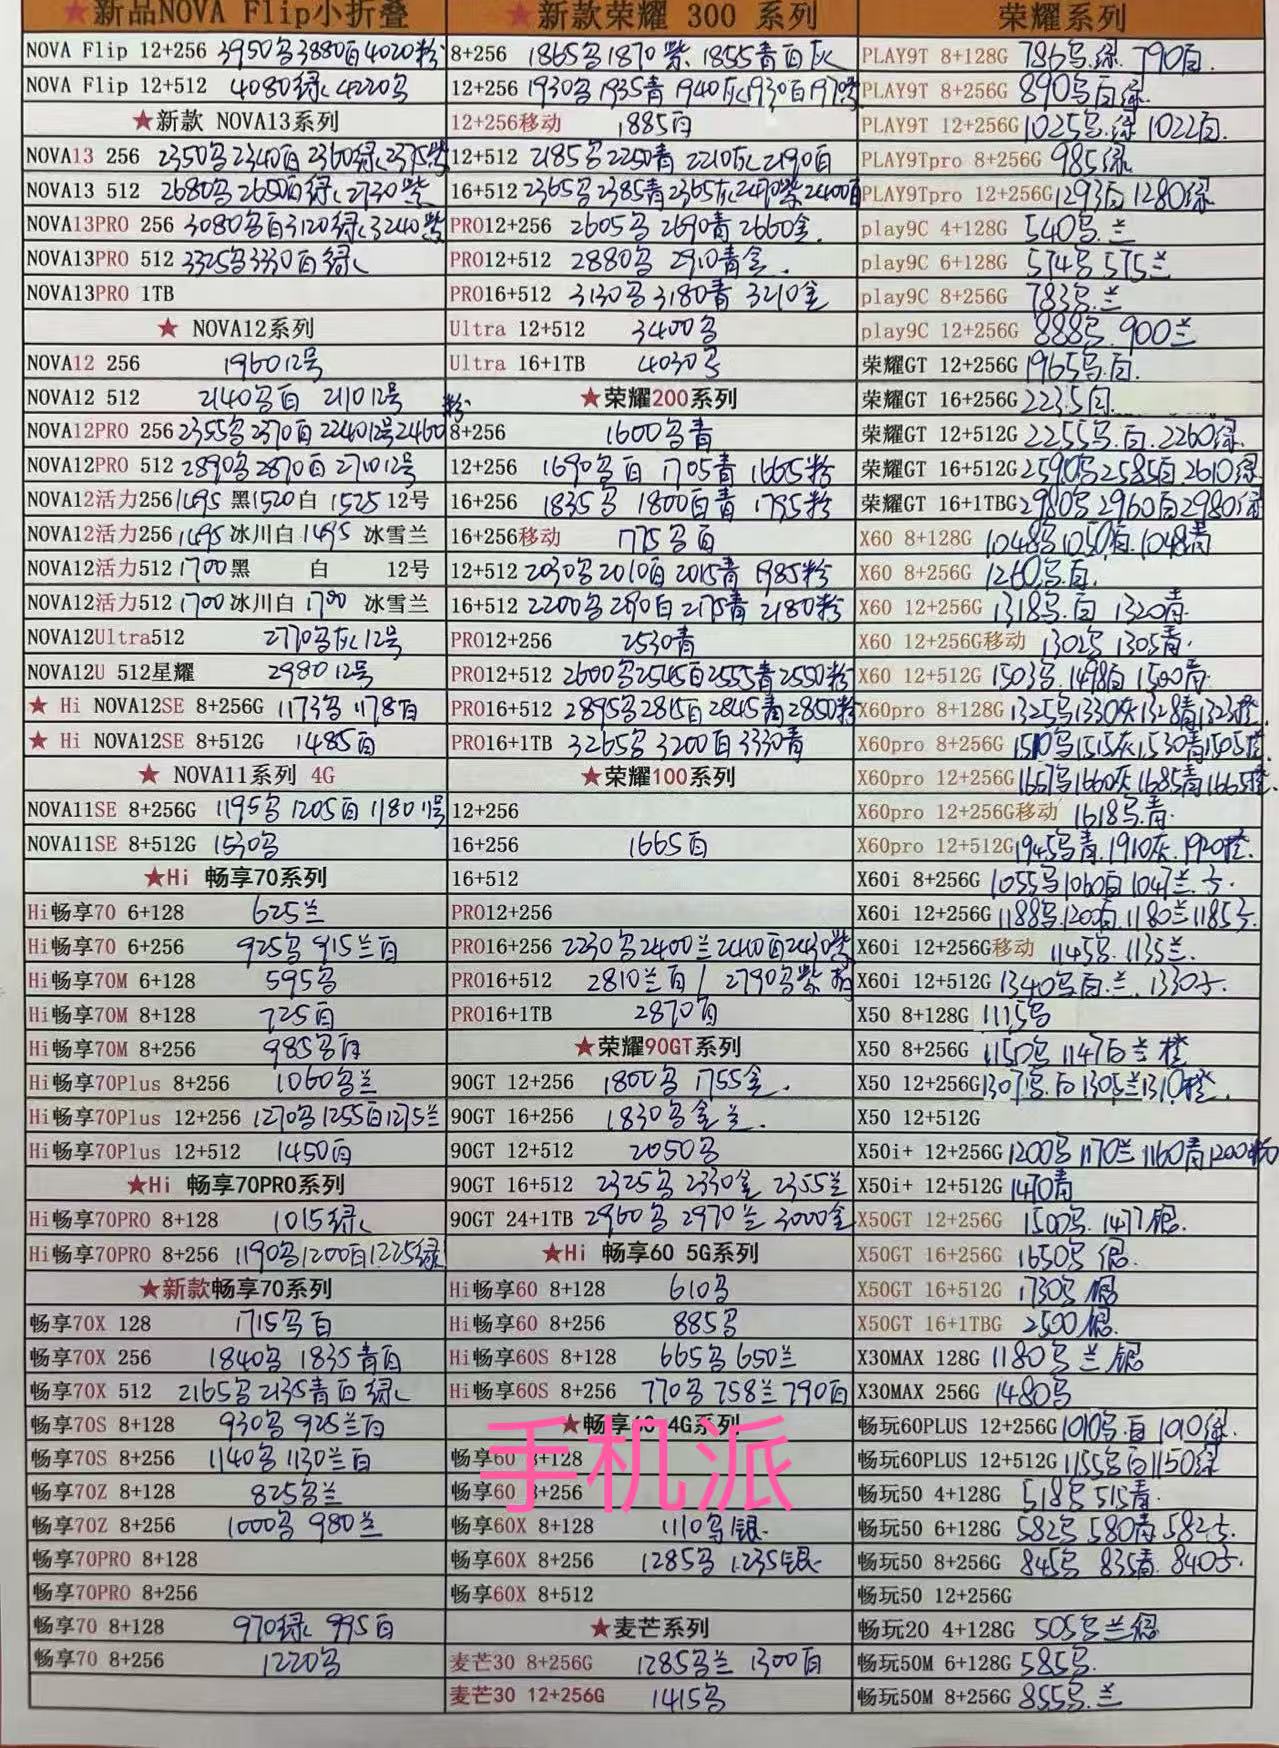 ★新品NOVA Flip小折叠
NOVA Flip 12+256 3950乌3880百4020粉
NOVA Flip 12+512 4080绿 4220乌
★新款 NOVA13系列
NOVA13 256 2350乌2340百2360绿2375紫
NOVA13 512 2680乌2650百绿2730紫
NOVA13PRO 256 3080乌百3120绿3240紫
NOVA13PRO 512 3325乌3330百绿
NOVA13PRO 1TB
★ NOVA12系列
NOVA12 256 1960 12号
NOVA12 512 2140乌百 2110 12号
NOVA12PRO 256 2355乌2370百2240 12号2460粉
NOVA12PRO 512 2890乌2870百2710 12号
NOVA12活力256 1495 黑1520 白 1525 12号
NOVA12活力256 1495 冰川白 1495 冰雪兰
NOVA12活力512 1700 黑 白 12号
NOVA12活力512 1700 冰川白 1700 冰雪兰
NOVA12Ultra512 2770乌灰12号
NOVA12U 512星耀 2980 12号
★ Hi NOVA12SE 8+256G 1173乌 1178百
★ Hi NOVA12SE 8+512G 1485百
★ NOVA11系列 4G
NOVA11SE 8+256G 1195乌 1205百 1180 11号
NOVA11SE 8+512G 1530乌
★Hi 畅享70系列
Hi畅享70 6+128 625兰
Hi畅享70 6+256 925乌 915兰百
Hi畅享70M 6+128 595乌
Hi畅享70M 8+128 725百
Hi畅享70M 8+256 985乌百
Hi畅享70Plus 8+256 1060乌兰
Hi畅享70Plus 12+256 1270乌1255百1275兰
Hi畅享70Plus 12+512 1450百
★Hi 畅享70PRO系列
Hi畅享70PRO 8+128 1015绿
Hi畅享70PRO 8+256 1190乌1200百1225绿
★新款畅享70系列
畅享70X 128 1715乌百
畅享70X 256 1840乌 1835青百
畅享70X 512 2165乌2135青百绿
畅享70S 8+128 930乌 925兰百
畅享70S 8+256 1140乌 1130兰百
畅享70Z 8+128 825乌兰
畅享70Z 8+256 1000乌 980兰
畅享70PRO 8+128
畅享70PRO 8+256
畅享70 8+128 970绿 995百
畅享70 8+256 1220乌
★新款荣耀 300 系列
8+256 1865乌1870紫 1855青百灰
12+256 1930乌1935青1940灰1930百1970紫
12+256移动 1885百
12+512 2185乌2250青 2210灰2190百
16+512 2365乌2385青2365灰2490紫2400百
PRO12+256 2605乌 2690青 2660金
PRO12+512 2880乌 2910青金
PRO16+512 3130乌3180青 3210金
Ultra 12+512 3400乌
Ultra 16+1TB 4030乌
★荣耀200系列
8+256 1600乌青
12+256 1690乌百 1705青 1665粉
16+256 1835乌 1800百青 1795粉
16+256移动 1775乌百
12+512 2030乌2010百2015青1985粉
16+512 2200乌2190白2175青2180粉
PRO12+256 2530青
PRO12+512 2600乌2545百2555青2550粉
PRO16+512 2895乌2815百2845青2850粉
PRO16+1TB 3265乌3200百3330青
★荣耀100系列
12+256
16+256 1665百
16+512
PRO12+256
PRO16+256 2230乌2400兰2440百2430紫
PRO16+512 2810兰百 / 2790乌紫
PRO16+1TB 2870百
★荣耀90GT系列
90GT 12+256 1800乌 1755金
90GT 16+256 1830乌金兰
90GT 12+512 2050乌
90GT 16+512 2325乌 2330金 2355兰
90GT 24+1TB 2960乌 2970兰 3000金
★Hi 畅享60 5G系列
Hi畅享60 8+128 610乌
Hi畅享60 8+256 885乌
Hi畅享60S 8+128 665乌 650兰
Hi畅享60S 8+256 770乌 758兰 790百
★畅享60 4G系列
畅享60 8+128
畅享60 8+256
畅享60X 8+128 1110乌银
畅享60X 8+256 1285乌 1235银
畅享60X 8+512
★麦芒系列
麦芒30 8+256G 1285乌兰 1300百
麦芒30 12+256G 1415乌
荣耀系列
PLAY9T 8+128G 786乌.绿 790百
PLAY9T 8+256G 890乌百绿
PLAY9T 12+256G 1025乌.绿 1022百
PLAY9Tpro 8+256G 985绿
PLAY9Tpro 12+256G 1293百1280绿
play9C 4+128G 540乌.兰
play9C 6+128G 574乌 575兰
play9C 8+256G 783乌.兰
play9C 12+256G 888乌 900兰
荣耀GT 12+256G 1965乌.百
荣耀GT 16+256G 2235百
荣耀GT 12+512G 2255乌.百.2260绿
荣耀GT 16+512G 2590乌2585百2610绿
荣耀GT 16+1TBG 2980乌2960百2980绿
X60 8+128G 1048乌1050百1048青
X60 8+256G 1260乌百
X60 12+256G 1318乌.百 1320青
X60 12+256G移动 1302乌 1305青
X60 12+512G 1503乌.1498百1500青
X60pro 8+128G 1325乌1330灰1328青1323橙
X60pro 8+256G 1510乌1515灰1530青1505橙
X60pro 12+256G 1657乌1660灰1685青1665橙
X60pro 12+256G移动 1618乌.青
X60pro 12+512G 1945乌青.1910灰.1920橙
X60i 8+256G 1055乌1060百1047兰
X60i 12+256G 1188乌.1200百1180兰1185
X60i 12+256G移动 1145乌.1135兰
X60i 12+512G 1340乌百.兰.1330
X50 8+128G 1115乌
X50 8+256G 1150乌 1147百兰橙
X50 12+256G 1307乌.百1305兰1310橙
X50 12+512G
X50i+ 12+256G 1200乌1170兰1160青1200粉
X50i+ 12+512G 1470青
X50GT 12+256G 1500乌.1477银
X50GT 16+256G 1650乌 银
X50GT 16+512G 1730乌 银
X50GT 16+1TBG 2500银
X30MAX 128G 1180乌兰银
X30MAX 256G 1480乌
畅玩60PLUS 12+256G 1010乌.百 1010绿
畅玩60PLUS 12+512G 1155乌百1150绿
畅玩50 4+128G 518乌 515青
畅玩50 6+128G 582乌 580青 582
畅玩50 8+256G 845乌 835青 840
畅玩50 12+256G
畅玩20 4+128G 505乌兰绿
畅玩50M 6+128G 585乌
畅玩50M 8+256G 855乌.兰
手机派